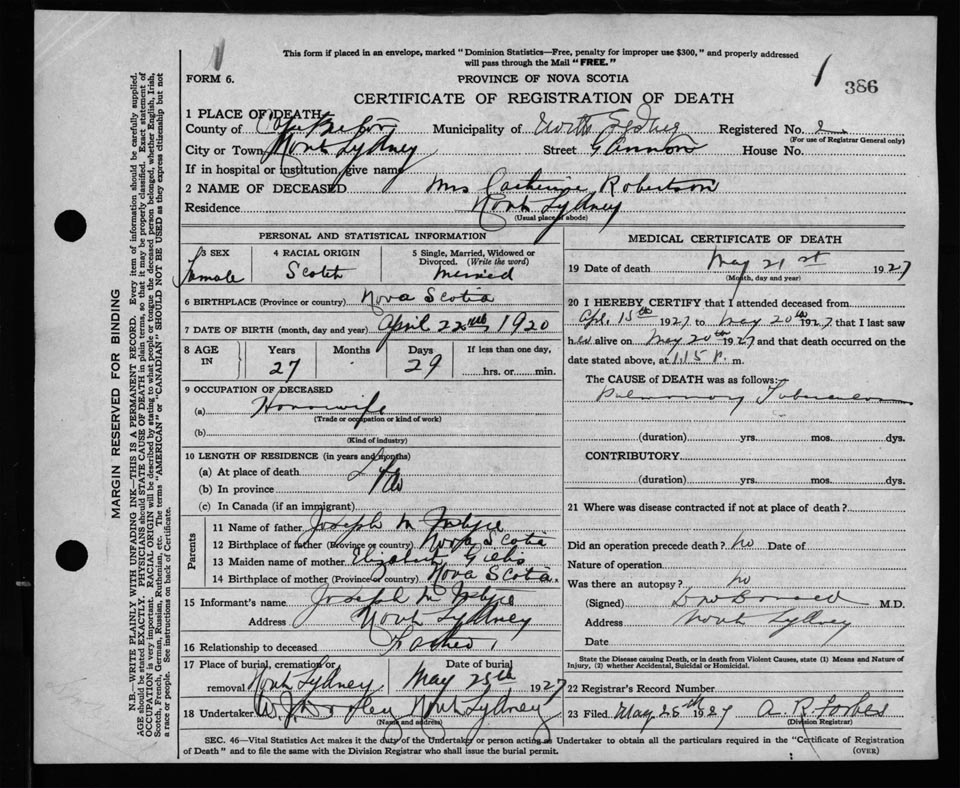 This form if placed in an envelope, marked "Dominion Statistics—Free, penalty for improper use $300," and properly addressed
will pass through the Mail "FREE."
FORM 6.
PROVINCE OF NOVA SCOTIA
1
386
CERTIFICATE OF REGISTRATION OF DEATH
1 PLACE OF DEATH
County of Cape Breton Municipality of North Sydney Registered No.
(For use of Registrar General only)
City or Town North Sydney Street House No.
If in hospital or institution, give name
2 NAME OF DECEASED Mrs Catherine Robertson
Residence North Sydney
(Usual place of abode)
PERSONAL AND STATISTICAL INFORMATION
3 SEX Female
4 RACIAL ORIGIN Scotch
5 Single, Married, Widowed or Divorced. (Write the word) Married
6 BIRTHPLACE (Province or country) Nova Scotia
7 DATE OF BIRTH (month, day and year) April 22nd 1920
8 AGE IN Years 27 Months Days 29 If less than one day, hrs. or min.
9 OCCUPATION OF DECEASED
(a) Housewife
(Trade or occupation or kind of work)
(b)
(Kind of industry)
10 LENGTH OF RESIDENCE (in years and months)
(a) At place of death
(b) In province
(c) In Canada (if an immigrant)
Parents
11 Name of father Joseph M
12 Birthplace of father (Province or country) Nova Scotia
13 Maiden name of mother Elizabeth Gillis
14 Birthplace of mother (Province or country) Nova Scotia
15 Informant's name Joseph M
Address North Sydney
16 Relationship to deceased Father
17 Place of burial, cremation or removal North Sydney
Date of burial May 25th 1927
18 Undertaker W. J. Dooley North Sydney
(Name and address)
MEDICAL CERTIFICATE OF DEATH
19 Date of death May 21st 1927
(Month, day and year)
20 I HEREBY CERTIFY that I attended deceased from
Apr. 15th 1927 to May 20th 1927, that I last saw
her alive on May 20th 1927 and that death occurred on the
date stated above, at 1.15 P. m.
The CAUSE of DEATH was as follows:
Pulmonary Tuberculosis
(duration) yrs. mos. dys.
CONTRIBUTORY
(duration) yrs. mos. dys.
21 Where was disease contracted if not at place of death?
Did an operation precede death? No Date of
Nature of operation
Was there an autopsy? No
(Signed) M.D.
Address North Sydney
Date
State the Disease causing Death, or in death from Violent Causes, state (1) Means and Nature of
Injury, (2) whether Accidental, Suicidal or Homicidal.
22 Registrar's Record Number
23 Filed May 25th 1927 A. R. Forbes
(Division Registrar)
SEC. 46—Vital Statistics Act makes it the duty of the Undertaker or person acting as Undertaker to obtain all the particulars required in the "Certificate of Registration
of Death" and to file the same with the Division Registrar who shall issue the burial permit.
(OVER)
MARGIN RESERVED FOR BINDING
N.B.—WRITE PLAINLY WITH UNFADING INK—THIS IS A PERMANENT RECORD. Every item of information should be carefully supplied.
AGE should be stated EXACTLY. PHYSICIANS should STATE CAUSE OF DEATH in plain terms, so that it may be properly classified. Exact statement of
OCCUPATION is very important. RACIAL ORIGIN will be described by stating to what people or tongue the deceased person belonged, whether English, Irish,
Scotch, French, German, Russian, Ruthenian, etc. The terms "AMERICAN" or "CANADIAN" SHOULD NOT BE USED as they express citizenship but not
a race or people. See instructions on back of Certificate.